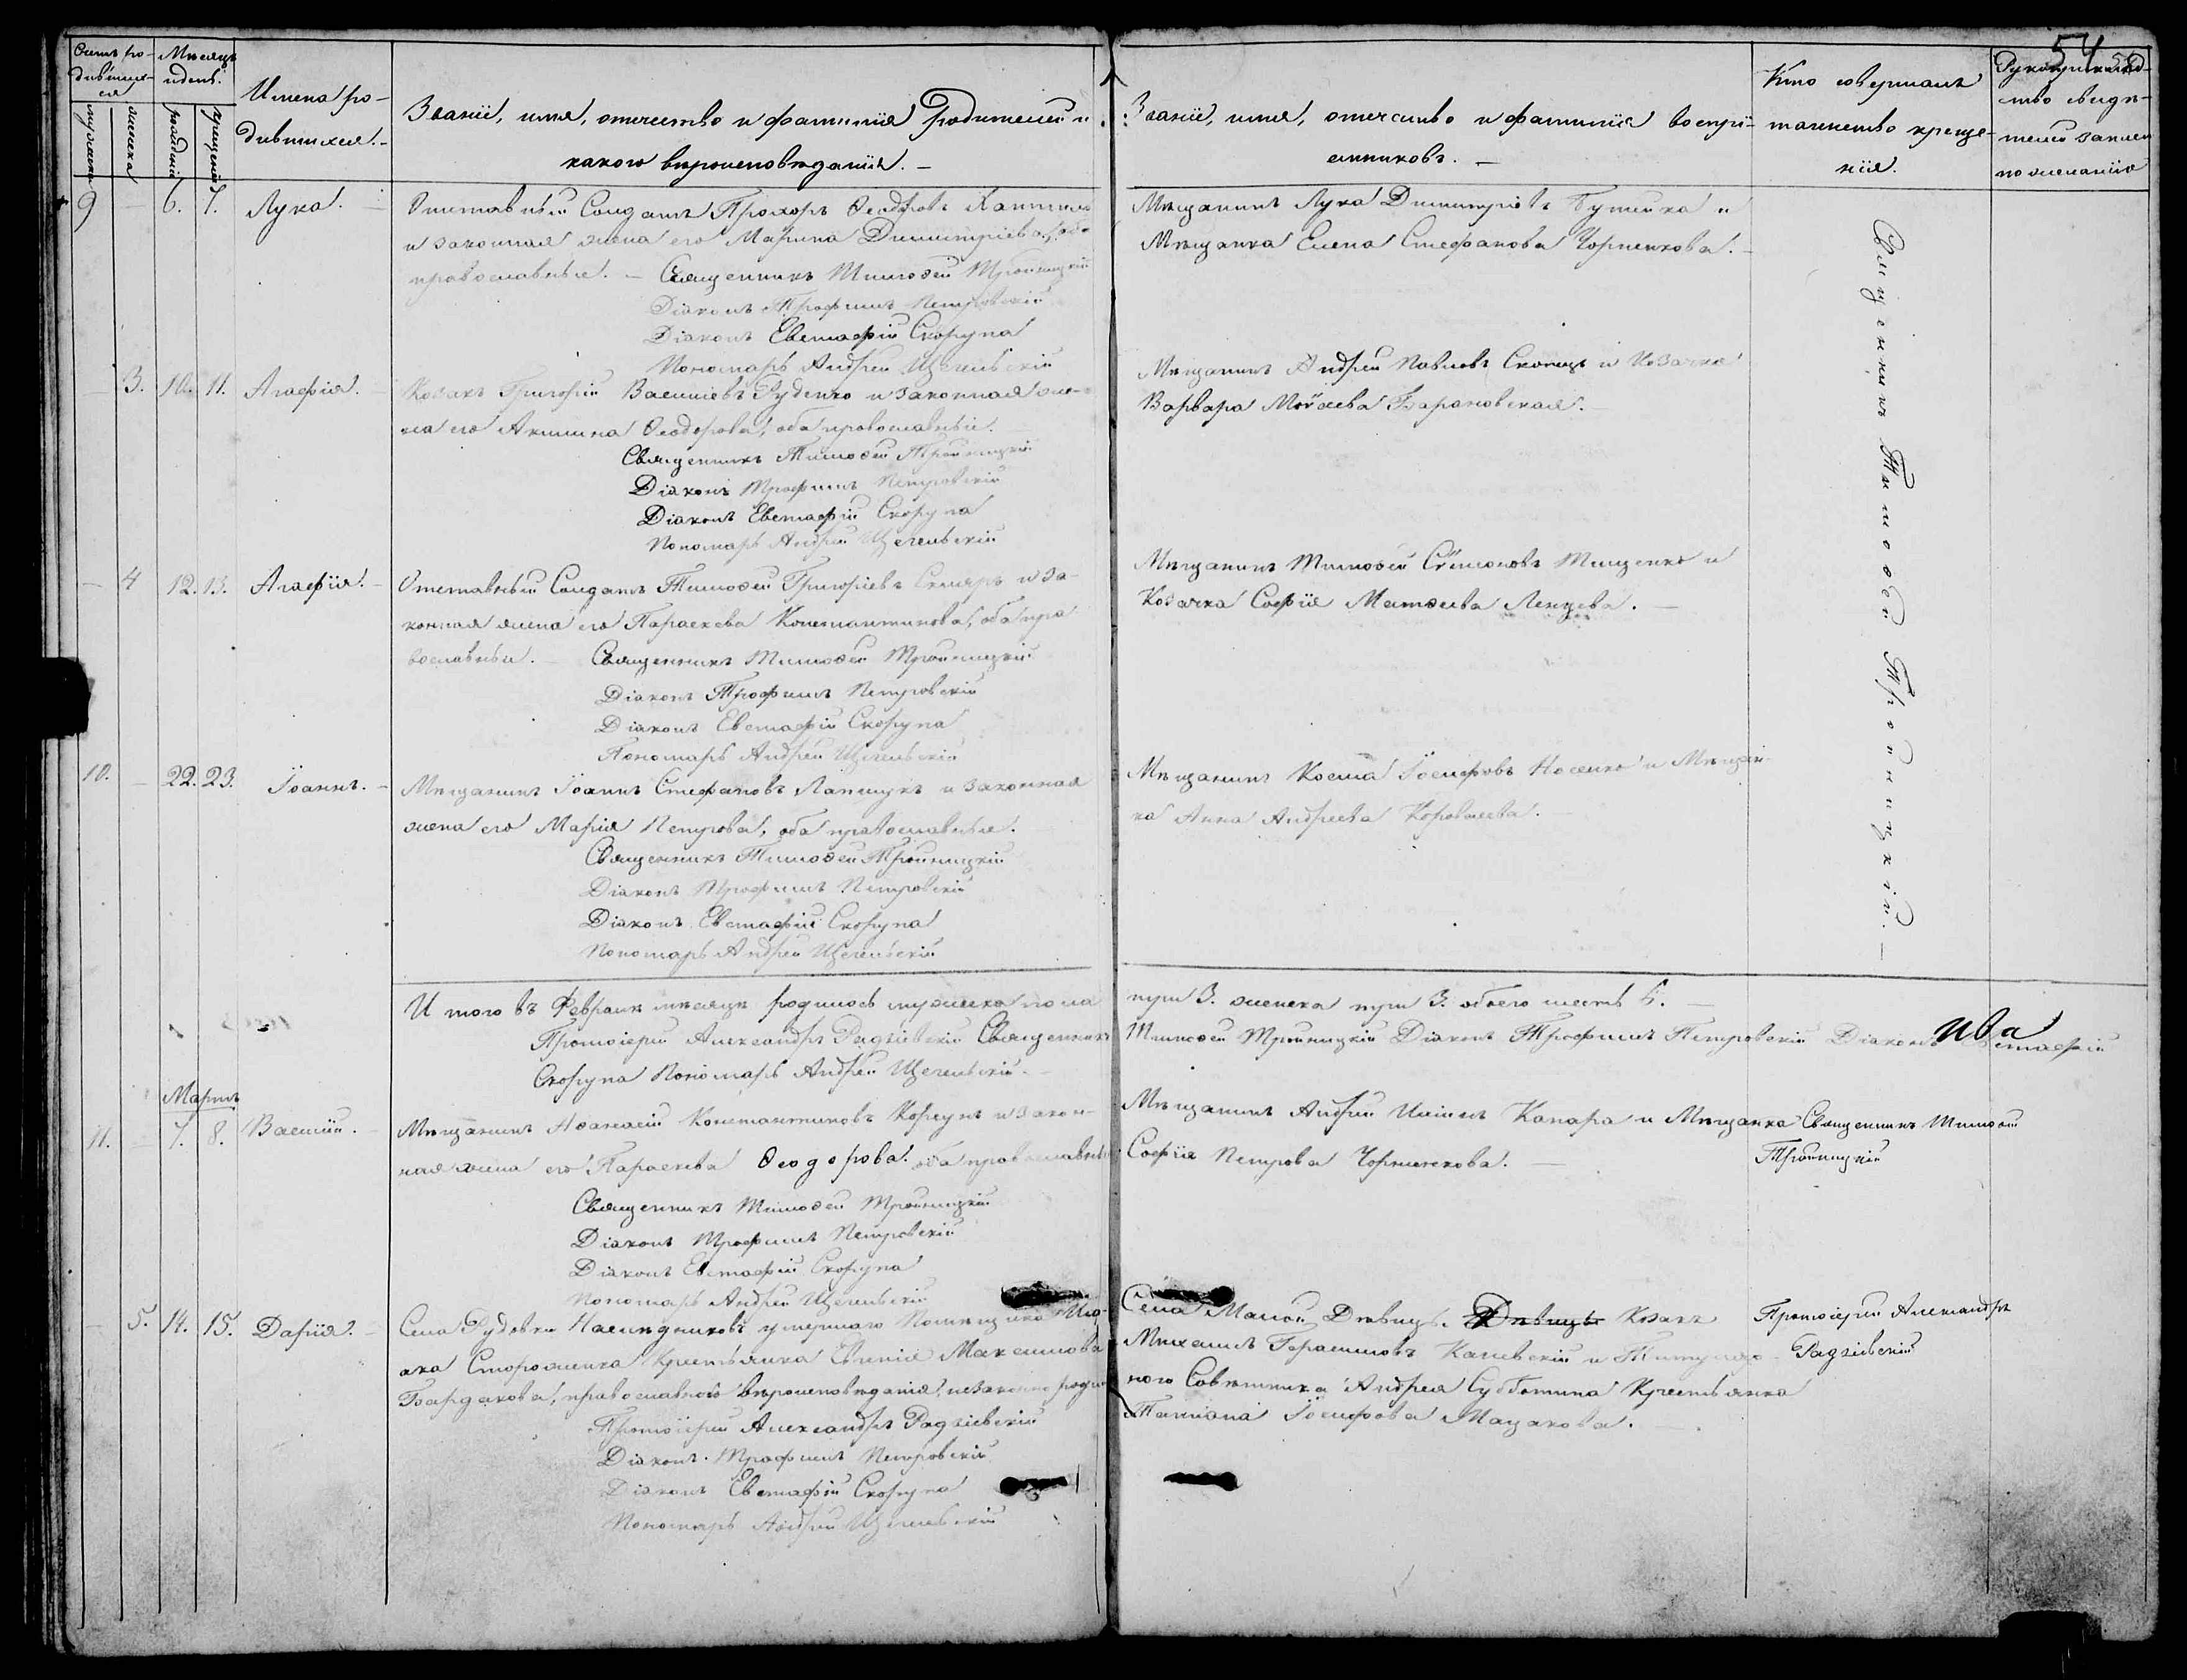 54
Счетъ ро-
дивших-
ся
Мѣсяцъ
и день.
мужеска
женска
рожденія
крещенія
Имена ро-
дившихся. -
Званіе, имя, отчество и фамилія родителей и
какого вѣроисповѣданія. -
Званіе, имя, отчество и фамилія воспрі-
емниковъ. -
Кто совершалъ
таинство креще-
нія.
Рукоприклад-
ство свидѣ-
телей записи
по желанію
9 - 6. 7. Лука. -
Отставный Солдатъ Прохоръ Ѳеодоровъ
и законная жена его Марина Димитріева, оба
православные. - Священникъ Тимоѳей Тройницкій
Діаконъ Трофимъ Петровскій
Діаконъ Евстафій Скорупа
Пономарь Андрей Щегельскій
Мѣщанинъ Лука Димитріевъ Бутейка и
Мѣщанка Елена Стефанова Чорненкова. -
Священникъ Тимоѳей Тройницкій. -
- 3. 10. 11. Агафія. -
Козакъ Григорій Василіевъ Руденко и законная же-
на его Акилина Ѳеодорова, оба православные.
Священникъ Тимоѳей Тройницкій
Діаконъ Трофимъ Петровскій
Діаконъ Евстафій Скорупа
Пономарь Андрей Щегельскій
Мѣщанинъ Андрей Павловъ Скопецъ и Козачка
Варвара Моѵсеева Барановская. -
- 4 12. 13. Агафія. -
Отставный Солдатъ Тимоѳей Григоріевъ Скляръ и за-
конная жена его Параскева Константинова, оба пра
вославные. - Священникъ Тимоѳей Тройницкій
Діаконъ Трофимъ Петровскій
Діаконъ Евстафій Скорупа
Пономарь Андрей Щегельскій
Мѣщанинъ Тимоѳей Сѵмеоновъ Тищенко и
Козачка Софія Матѳеева Ленцева. -
10. - 22. 23. Іоаннъ. -
Мѣщанинъ Іоаннъ Стефановъ Лапшукъ и законная
жена его Марія Петрова, оба православные.
Священникъ Тимоѳей Тройницкій
Діаконъ Трофимъ Петровскій
Діаконъ Евстафій Скорупа
Пономарь Андрей Щегельскій
Мѣщанинъ Косма Іосифовъ Носенко и Мѣщан-
ка Анна Андреева
И того въ Февралѣ мѣсяцѣ родилось мужеска пола
три 3. женска три 3. обоего шесть 6. -
Протоіерей Александръ Радзіевскій Священникъ
Тимоѳей Тройницкій Діаконъ Трофимъ Петровскій Діаконъ Евстафій
Скорупа Пономарь Андрей Щегельскій. -
Мартъ
11. - 7. 8. Василій. -
Мѣщанинъ Аѳанасій Константиновъ Корсунъ и закон-
ная жена его Параскева Ѳеодорова. оба православные
Священникъ Тимоѳей Тройницкій
Діаконъ Трофимъ Петровскій
Діаконъ Евстафій Скорупа
Пономарь Андрей Щегельскій
Мѣщанинъ Андрей Капара и Мѣщанка
Софія Петрова -
Священникъ Тимоѳей
Тройницкій
- 5. 14. 15. Дарія. -
Села Рудовки Наслѣдниковъ умершаго Помѣщика
Стороженка Крестьянка Евгенія Максимова
Бардакова, православного вѣроисповѣданія, незаконно
Протоіерей Александръ Радзіевскій
Діаконъ Трофимъ Петровскій
Діаконъ Евстафій Скорупа
Пономарь Андрей Щегельскій
Села Малой Дѣвицы Козакъ
Михаилъ Герасимовъ и Титуляр-
ного Совѣтника Андрея Субботина Крестьянка
Татіана Іосифова Мацакова. -
Протоіерей Александръ
Радзіевскій